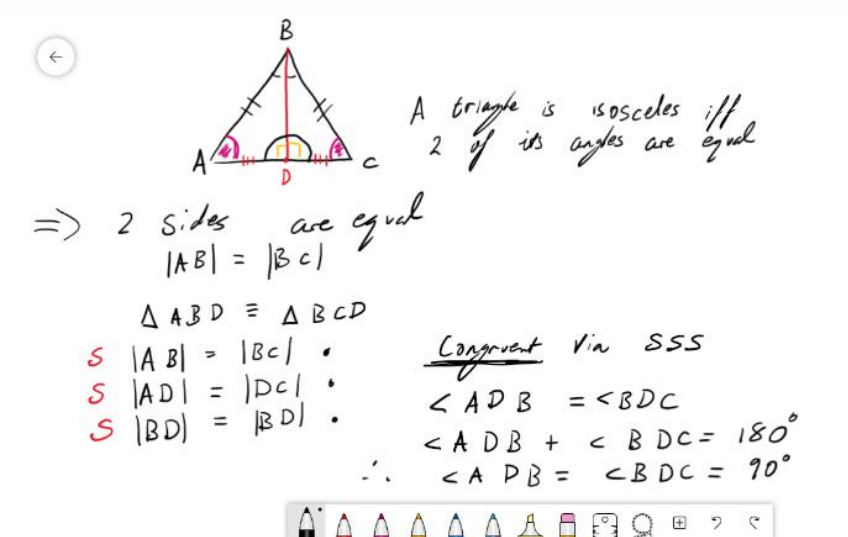 B
A triangle is isosceles iff
2 of its angles are equal
A
D
C
=> 2 sides are equal
|AB| = |BC|
Δ ABD ≡ Δ BCD
S |AB| = |BC| •
S |AD| = |DC| •
S |BD| = |BD| •
Congruent via SSS
<ADB = <BDC
<ADB + <BDC = 180°
∴ <ADB = <BDC = 90°